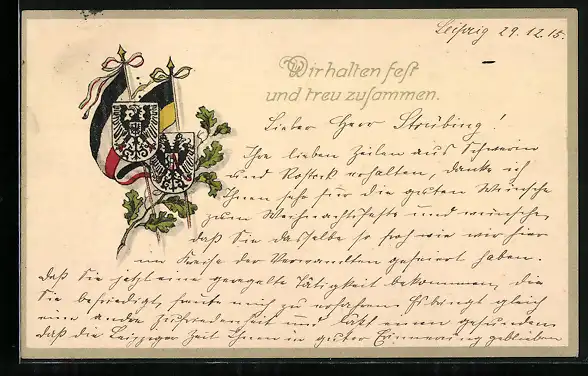 Leipzig 29.12.15.
Wir halten fest
und treu zusammen.
Lieber Herr Strübing!
Ihre lieben Zeilen aus Schwerin
und Rostock erhalten, danke ich
Ihnen sehr für die guten Wünsche
zum Weihnachtsfeste und wünsche,
daß Sie dasselbe so froh wie wir hier
im Kreise der Verwandten gefeiert haben.
Daß Sie jetzt eine geregelte Tätigkeit bekommen, die
Sie befriedigt, freute mich zu erfahren. Es bringt gleich
eine andre Zufriedenheit und läßt einen gesunden.
Daß die Leipziger Zeit Ihnen in guter Erinnerung geblieben